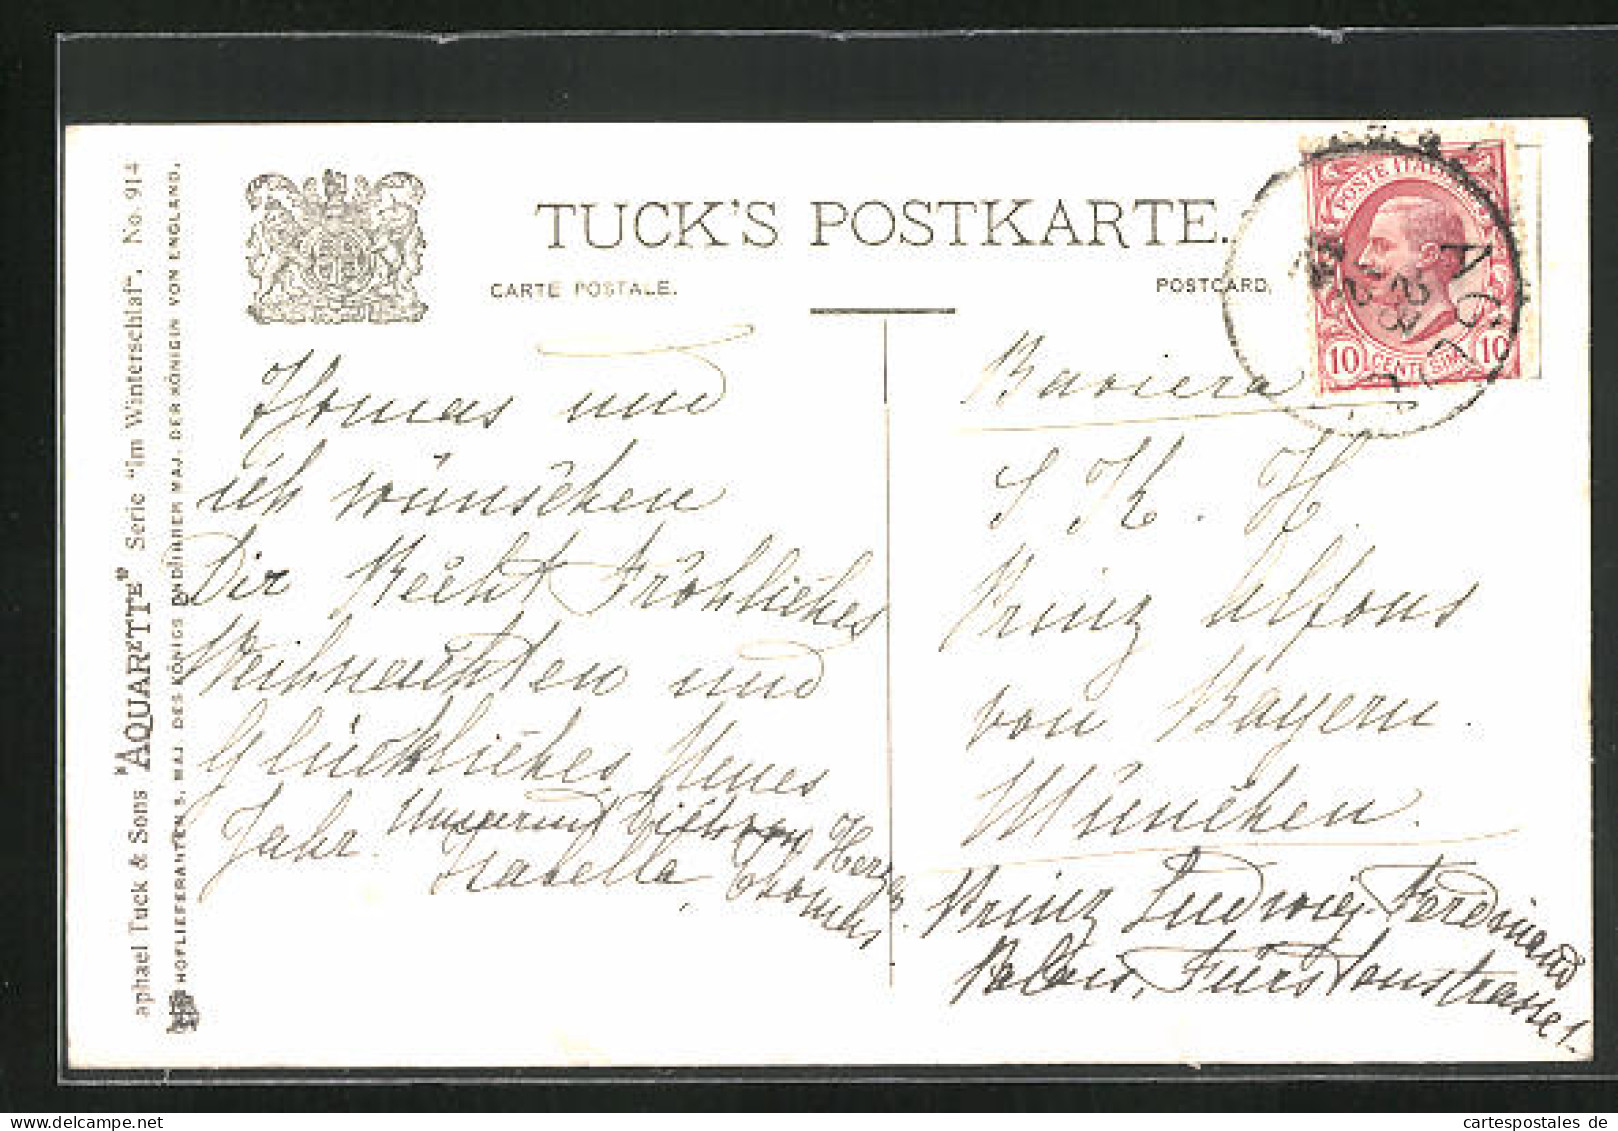 TUCK'S POSTKARTE.
CARTE POSTALE.
POSTCARD.
POSTE ITALIANE
10 CENTESIMI 10
aphael Tuck & Sons "AQUARETTE" Serie "im Winterschlaf". No. 914
HOFLIEFERANTEN S. MAJ. DES KÖNIGS UND IHRER MAJ. DER KÖNIGIN VON ENGLAND.
Thomas und
ich wünschen
Dir Recht Fröhliches
Weihnachten und
Glückliches Neues
Jahr.
Isabella,
Baviera
S. K. H.
Prinz Alfons
von Bayern.
München.
Prinz Ludwig-Ferdinand
Palais, Fürstenstrasse 1.
cartespostales.de